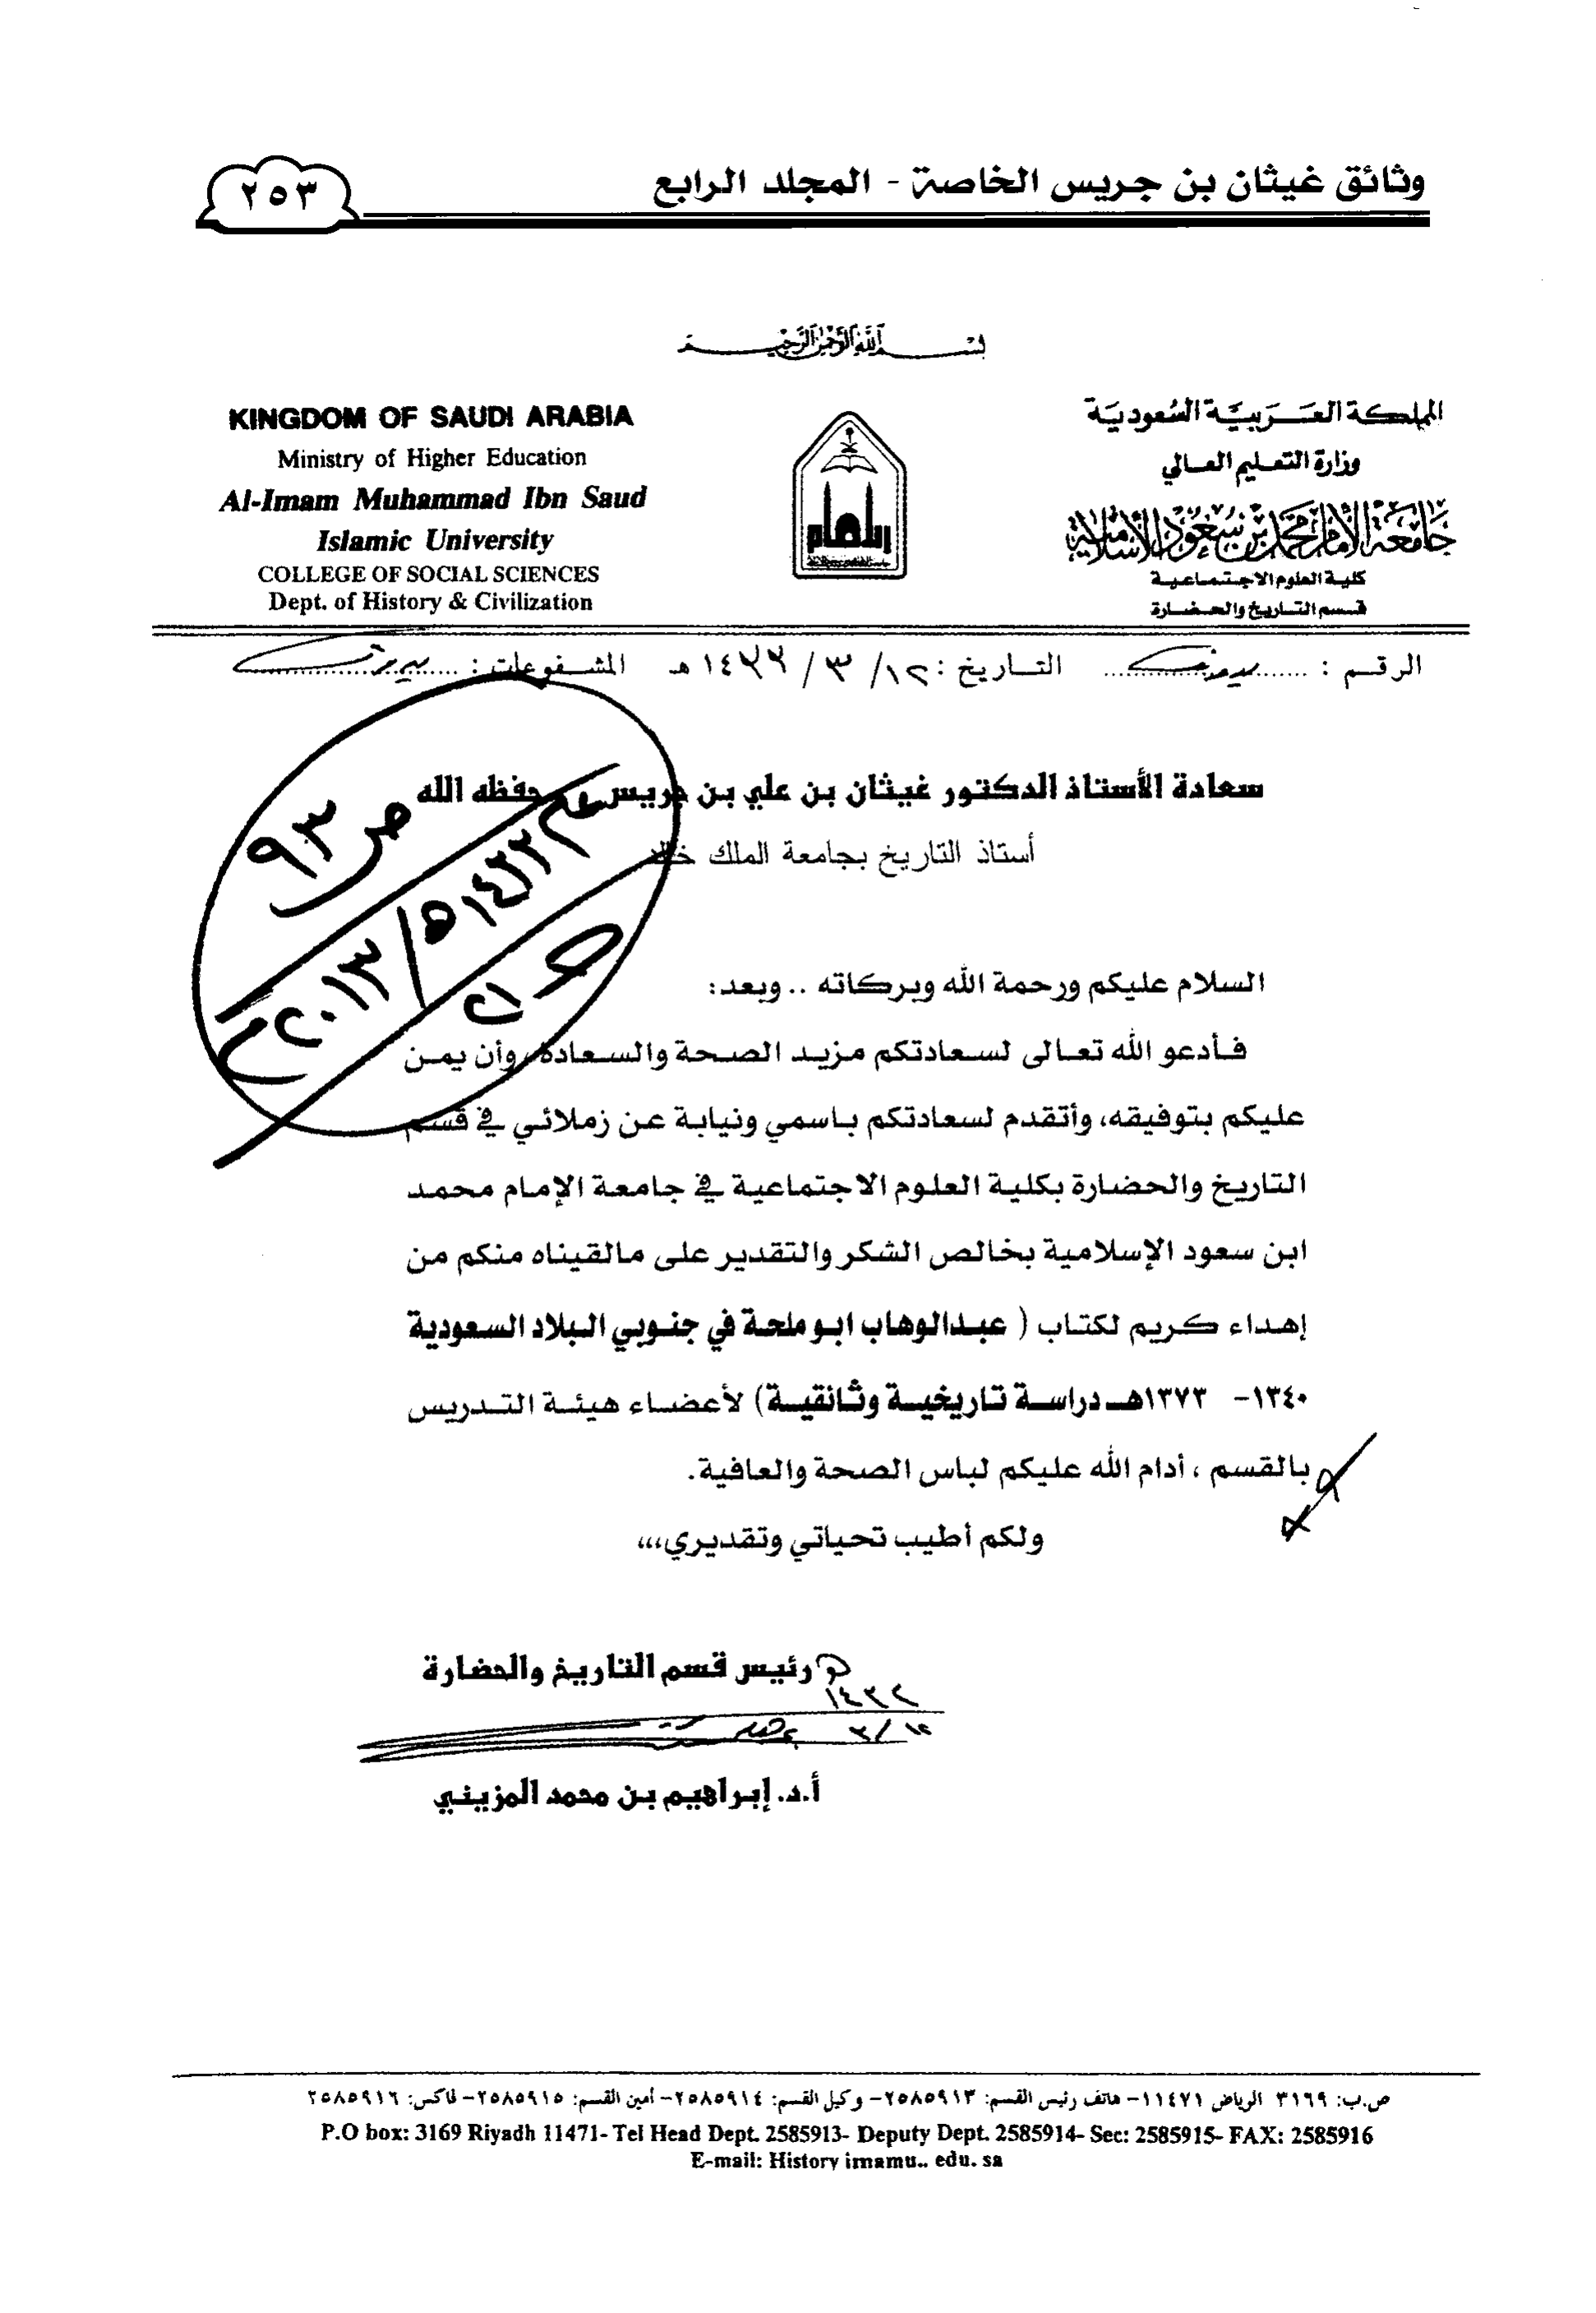 وثائق غيثان بن جريس الخاصة - المجلد الرابع
٢٥٣
بسم الله الرحمن الرحيم
المملكة العربية السعودية
وزارة التعليم العالي
جامعة الإمام محمد بن سعود الإسلامية
كلية العلوم الاجتماعية
قسم التاريخ والحضارة
KINGDOM OF SAUDI ARABIA
Ministry of Higher Education
Al-Imam Muhammad Ibn Saud
Islamic University
COLLEGE OF SOCIAL SCIENCES
Dept. of History & Civilization
الرقم : بدون التاريخ : ١٢/ ٣/ ١٤٣٣ هـ المشفوعات : بدون
سعادة الأستاذ الدكتور غيثان بن علي بن جريس حفظه الله
أستاذ التاريخ بجامعة الملك خالد
ص ٩٣
١٤٣٣هـ/
٢٠١٣م
السلام عليكم ورحمة الله وبركاته .. وبعد:
فأدعو الله تعالى لسعادتكم مزيد الصحة والسعادة، وأن يمن
عليكم بتوفيقه، وأتقدم لسعادتكم باسمي ونيابة عن زملائي في قسم
التاريخ والحضارة بكلية العلوم الاجتماعية في جامعة الإمام محمد
ابن سعود الإسلامية بخالص الشكر والتقدير على مالقيناه منكم من
إهداء كريم لكتاب ( عبدالوهاب ابو ملحة في جنوبي البلاد السعودية
١٣٤٠- ١٣٧٣هـ دراسة تاريخية وثائقية) لأعضاء هيئة التدريس
بالقسم ، أدام الله عليكم لباس الصحة والعافية.
ولكم أطيب تحياتي وتقديري،،،
رئيس قسم التاريخ والحضارة
أ.د. إبراهيم بن محمد المزيني
ص.ب: ٣١٦٩ الرياض ١١٤٧١- هاتف رئيس القسم: ٢٥٨٥٩١٣- وكيل القسم: ٢٥٨٥٩١٤- أمين القسم: ٢٥٨٥٩١٥- فاكس: ٢٥٨٥٩١٦
P.O box: 3169 Riyadh 11471- Tel Head Dept. 2585913- Deputy Dept. 2585914- Sec: 2585915- FAX: 2585916
E-mail: History imamu.. edu. sa